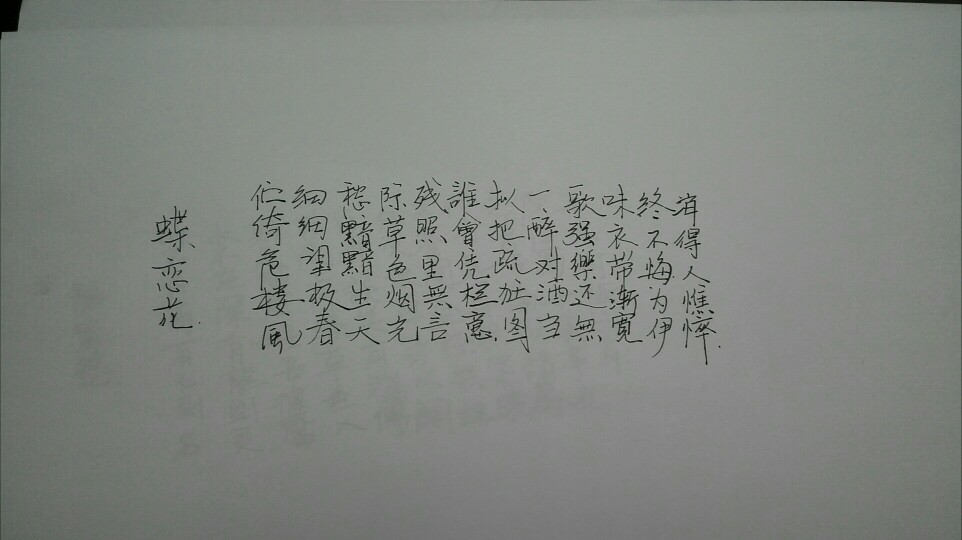 蝶恋花.
伫倚危楼風
细细望极春
愁黯黯生天
际草色烟光
残照里無言
誰會凭栏意.
拟把疏狂图
一醉对酒当
歌强樂还無
味衣带漸寬
终不悔为伊
消得人憔悴.